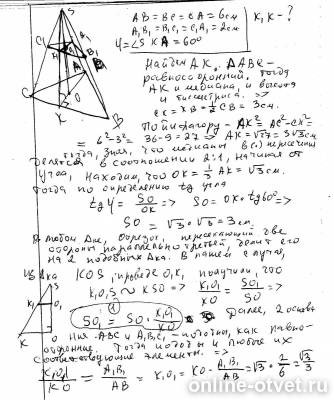 AB = BC = CA = 6см
A₁B₁ = B₁C₁ = C₁A₁ = 2см
K₁K - ?
φ = ∠SKA = 60°
S
C₁
A₁
B₁
C
A
K
O
B
Найдем AK. ΔABC -
равносторонний, тогда
AK и медиана, и высота
и биссектриса. =>
CK = KB = ½CB = 3см.
По Пифагору - AK² = AC² - CK² =
= 6² - 3² = 36 - 9 = 27 => AK = √27 = 3√3см
тогда, зная, что медианы в (·) пересечения
делятся в соотношении 2:1, начиная от
угла, находим, что OK = ⅓AK = √3см.
тогда по определению tg угла
tgφ = SO/OK => SO = OK · tg60° =>
SO = √3 · √3 = 3см.
В любом Δке, отрезок, пересекающий две
стороны параллельно третьей, делит его
на 2 подобных Δка. В нашем случае,
из Δка KOS, проведя O₁K₁ получили, что
K₁O₁S ~ KSO => K₁O₁/KO = SO₁/SO =>
① SO₁ = SO · K₁O₁/KO
Далее, 2 основа-
ния ABC и A₁B₁C₁ - подобны, как равно-
сторонние. Тогда подобны и любые их
соответствующие элементы. =>
K₁O₁/KO = A₁B₁/AB => K₁O₁ = KO · A₁B₁/AB = √3 · 2/6 = √3/3
S
K₁
O₁
K
O
online-otvet.ru